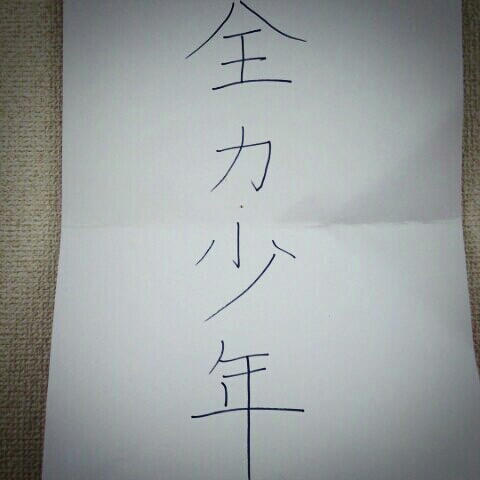 全力少年